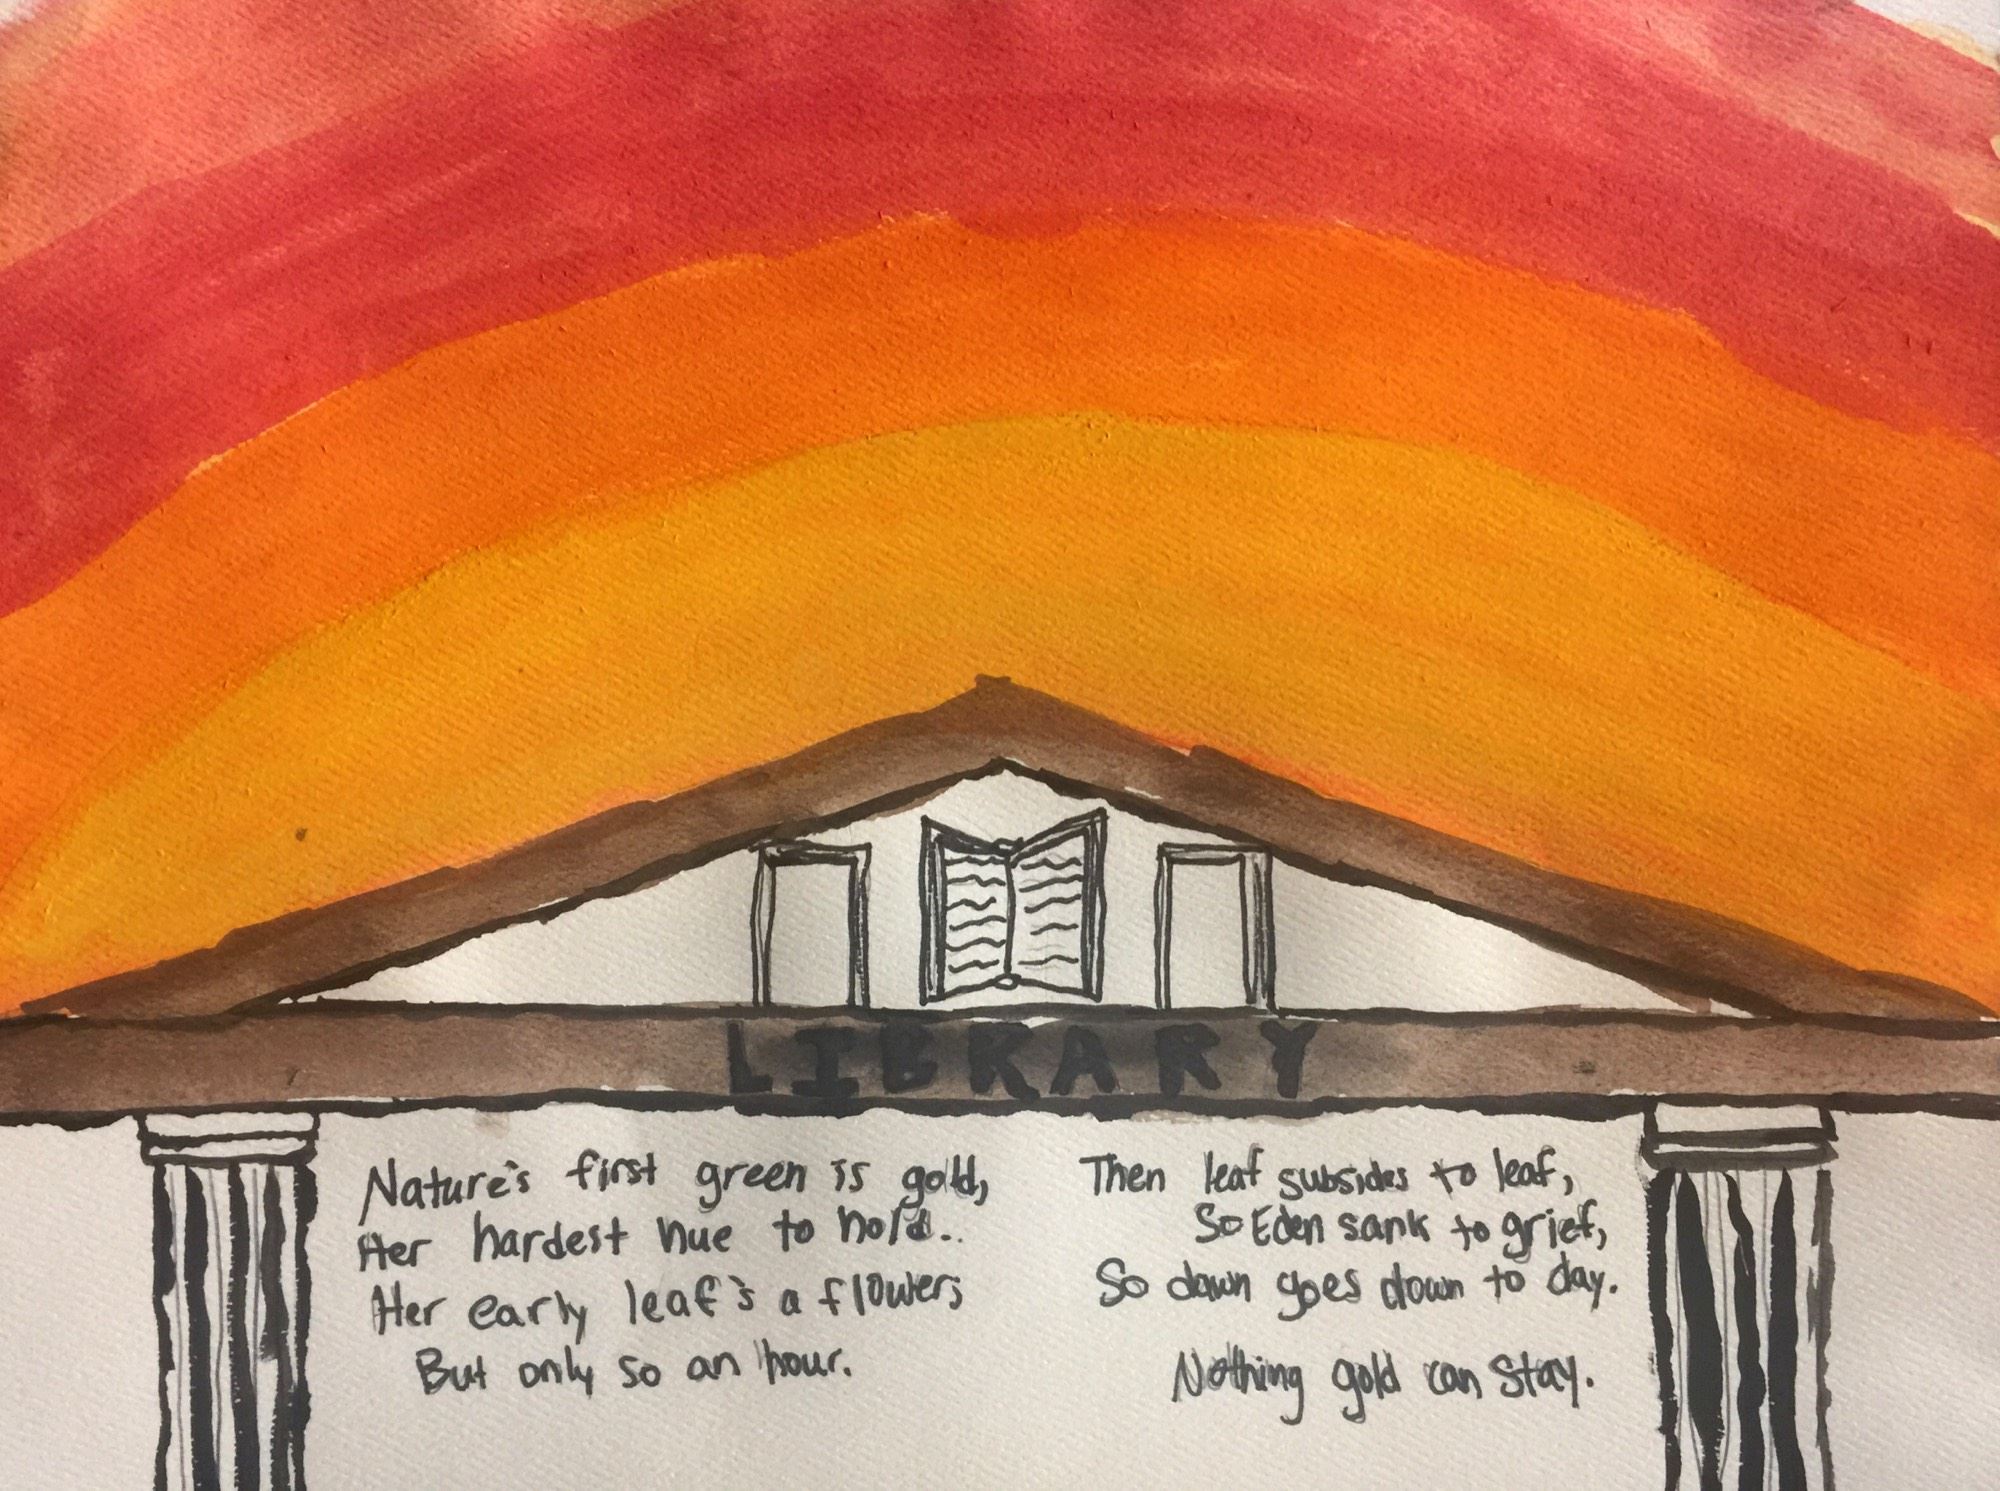 LIBRARY
Nature's first green is gold,
Her hardest hue to hold..
Her early leaf's a flower;
But only so an hour.
Then leaf subsides to leaf,
So Eden sank to grief,
So dawn goes down to day.
Nothing gold can stay.